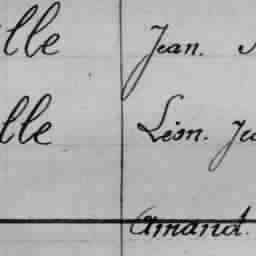 lle Jean.
lle Léon. Ju
Amand.